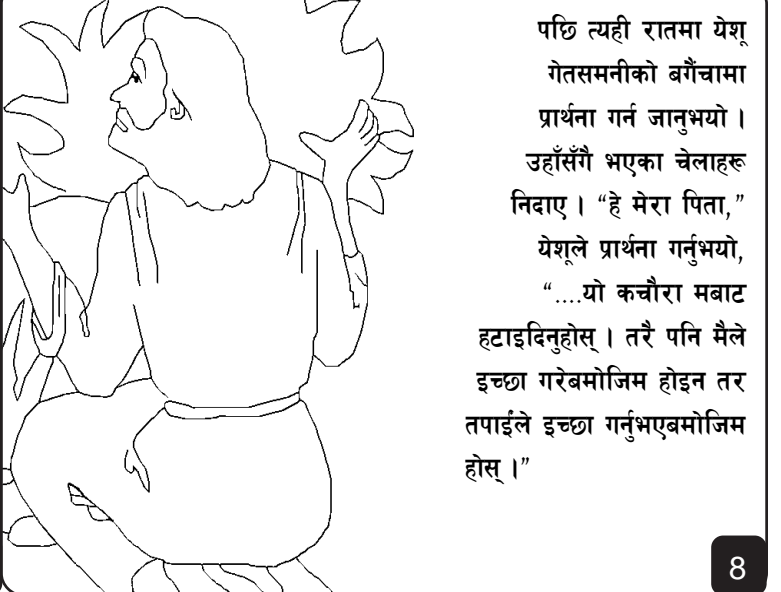 पछि त्यही रातमा येशू
गेतसमनीको बगैंचामा
प्रार्थना गर्न जानुभयो ।
उहाँसँगै भएका चेलाहरू
निदाए । “हे मेरा पिता,”
येशूले प्रार्थना गर्नुभयो,
“....यो कचौरा मबाट
हटाइदिनुहोस् । तरै पनि मैले
इच्छा गरेबमोजिम होइन तर
तपाईंले इच्छा गर्नुभएबमोजिम
होस् ।”
8